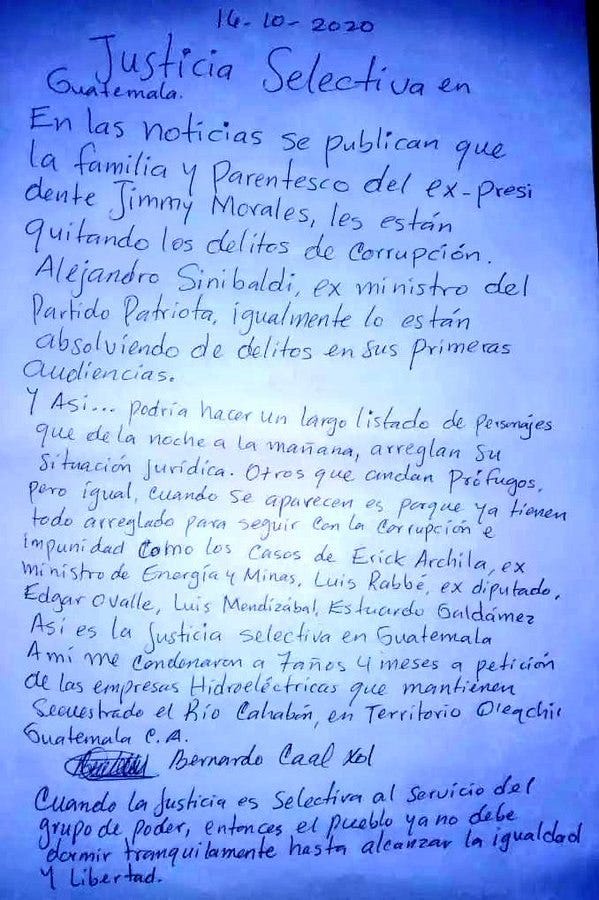 14-10-2020
Justicia Selectiva en
Guatemala.
En las noticias se publican que
la familia y Parentesco del ex-presi
dente Jimmy Morales, les están
quitando los delitos de corrupción.
Alejandro Sinibaldi, ex ministro del
Partido Patriota, igualmente lo están
absolviendo de delitos en sus primeras
audiencias.
Y Así... podría hacer un largo listado de personajes
que de la noche a la mañana, arreglan su
situación jurídica. Otros que andan Prófugos,
pero igual, cuando se aparecen es porque ya tienen
todo arreglado para seguir con la corrupción e
impunidad como los casos de Erick Archila, ex
ministro de Energía y Minas, Luis Rabbé, ex diputado,
Edgar Ovalle, Luis Mendizábal, Estuardo Galdámez
Así es la justicia selectiva en Guatemala
A mí me condenaron a 7 años 4 meses a petición
de las empresas Hidroeléctricas que mantienen
Secuestrado el Río Cahabón, en Territorio Q'eqchi'
Guatemala C. A.
Bernardo Caal Xol
Cuando la justicia es Selectiva al servicio del
grupo de poder, entonces el pueblo ya no debe
dormir tranquilamente hasta alcanzar la igualdad
y Libertad.